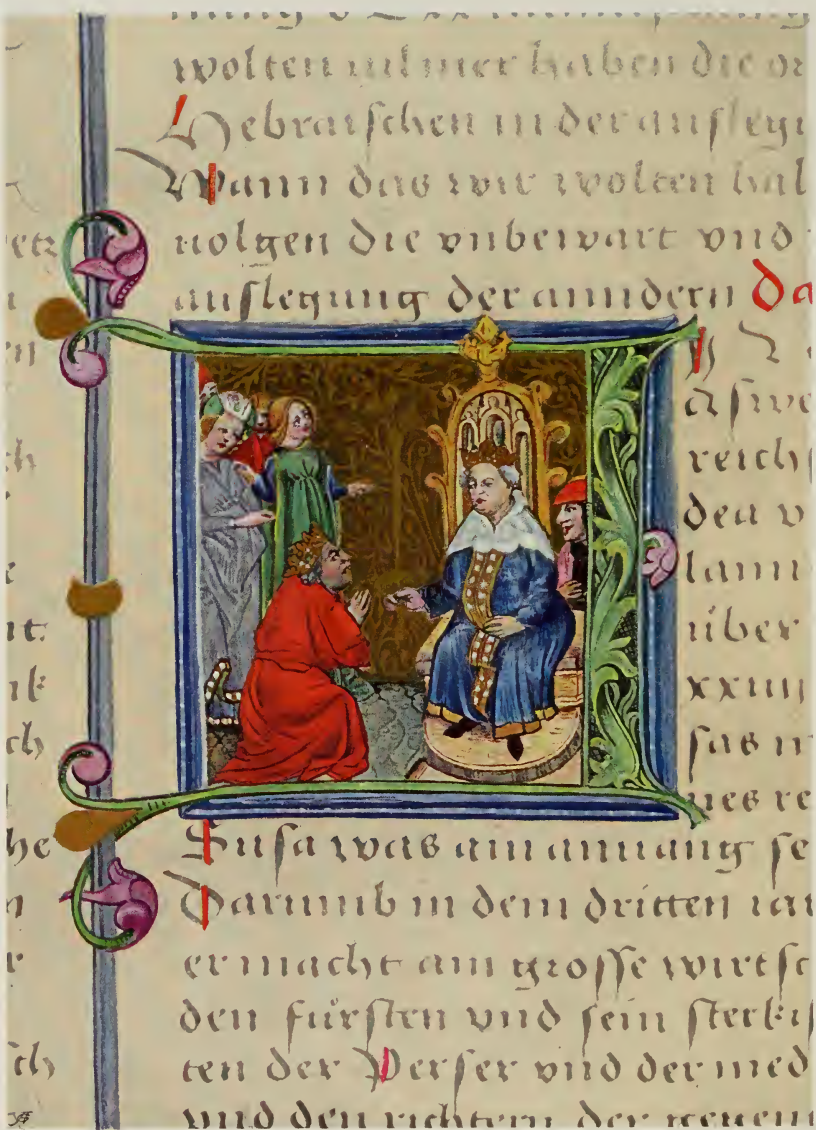 etz
en
ch
nt
nk
ch
he
n
r
ſch
wolten haben die or
Hebraiſchen in der auſlegu
Wann das wir wolten hal
nolgen die vnbewart vnd
auſlegung der anndern Da
aſwe
reichſ
den v
lann
über
xxiiij
ſas n
nes re
Suſa was am annang ſe
Darumb in dem dritten iar
er macht ain groſſe wirtſc
den fürſten vnd ſein ſterkiſ
ten der Perſer vnd der med
vnd den richtern der